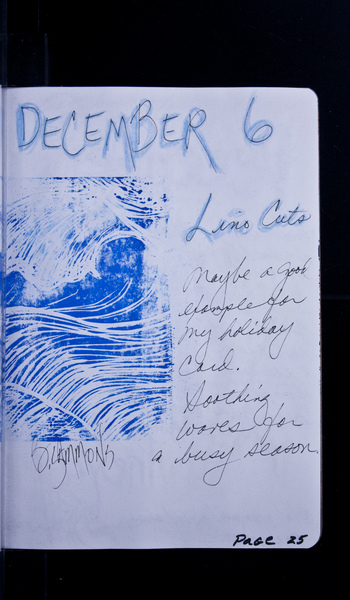 DECEMBER 6
Lino Cuts
Maybe a good
example for
my holiday
Card.
Soothing
waves for
a busy season.
D. LEMMONS
Page 25